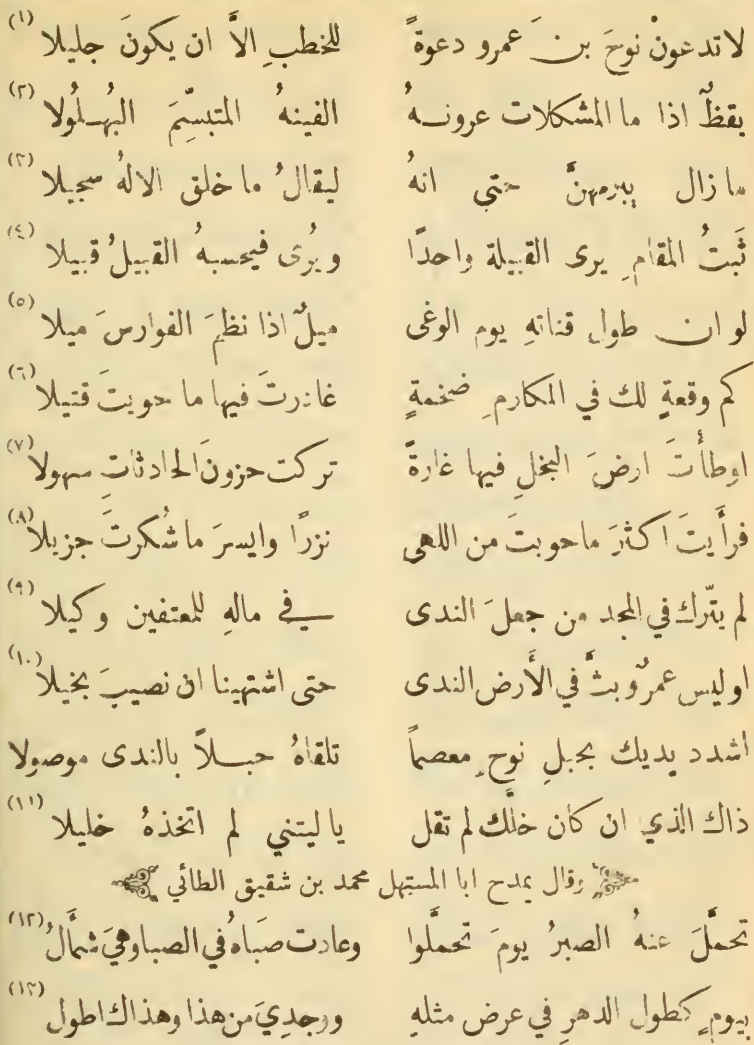 لا تدعونْ نوحَ بن عمرو دعوةً للخطبِ الاَّ ان يكونَ جليلا (١)
يقظٌ اذا ما المشكلات عرونهُ الفينهُ المتبسِّمَ البُهلُولا (٢)
ما زال يبرمهنَّ حتى انهُ ليقالُ ما خلق الالهُ سحيلا (٣)
ثَبتُ المقامِ يرى القبيلة واحدًا ويُرى فيحسبهُ القبيلُ قبيلا (٤)
لو ان طولَ قناتهِ يوم الوغى ميلٌ اذا نظمَ الفوارسَ ميلا (٥)
كم وقعةٍ لك في المكارمِ ضخمةٍ غادرتَ فيها ما حويتَ قتيلا (٦)
اوطأتَ ارضَ البخلِ فيها غارةً تركت حزونَ الحادثاتِ سهولا (٧)
فرأَيتَ اكثرَ ما حويتَ من اللهى نزرًا وايسرَ ما شُكرتَ جزيلا (٨)
لم يتّرك في المجد من جعلَ الندى في مالهِ للمعتفين وكيلا (٩)
اوليس عمرٌو بثَّ في الأَرض الندى حتى اشتهينا ان نصيبَ بخيلا (١٠)
اشدد يديك بحبلِ نوحٍ معصماً تلقاهُ حبلاً بالندى موصولا
ذاك الذي ان كان خلَّك لم تقل يا ليتني لم اتخذهُ خليلا (١١)
وقال يمدح ابا المستهل محمد بن شقيق الطائي
تحمَّلَ عنهُ الصبرُ يومَ تحمَّلوا وعادت صبَاهُ في الصبا وهيَ شمأَلُ (١٢)
بيومٍ كطول الدهرِ في عرض مثلهِ ووجديَ من هذا وهذاك اطول (١٣)